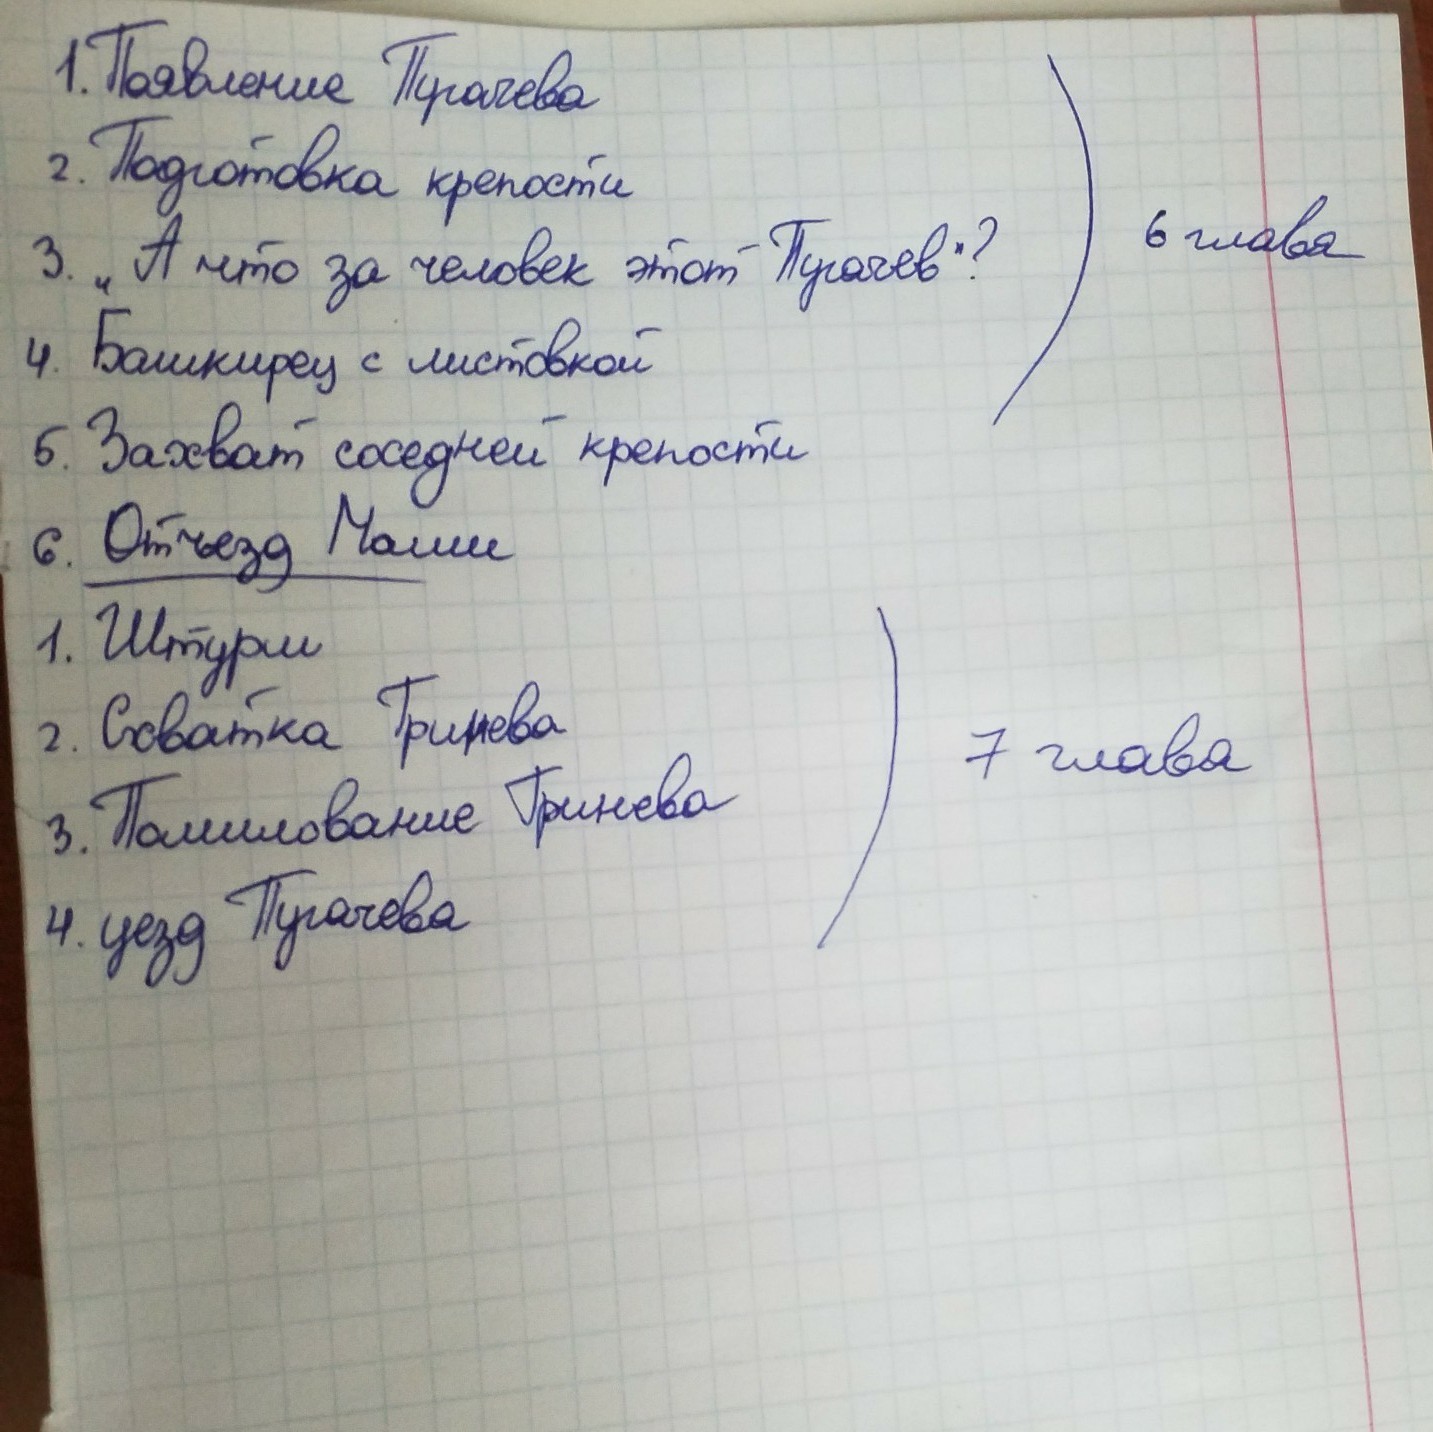 1. Появление Пугачева
2. Подготовка крепости
3. „А что за человек этот Пугачев"?
6 глава
4. Башкирец с листовкой
5. Захват соседней крепости
6. Отъезд Маши
1. Штурм
2. Схватка Гринева
7 глава
3. Помилование Гринева
4. уезд Пугачева